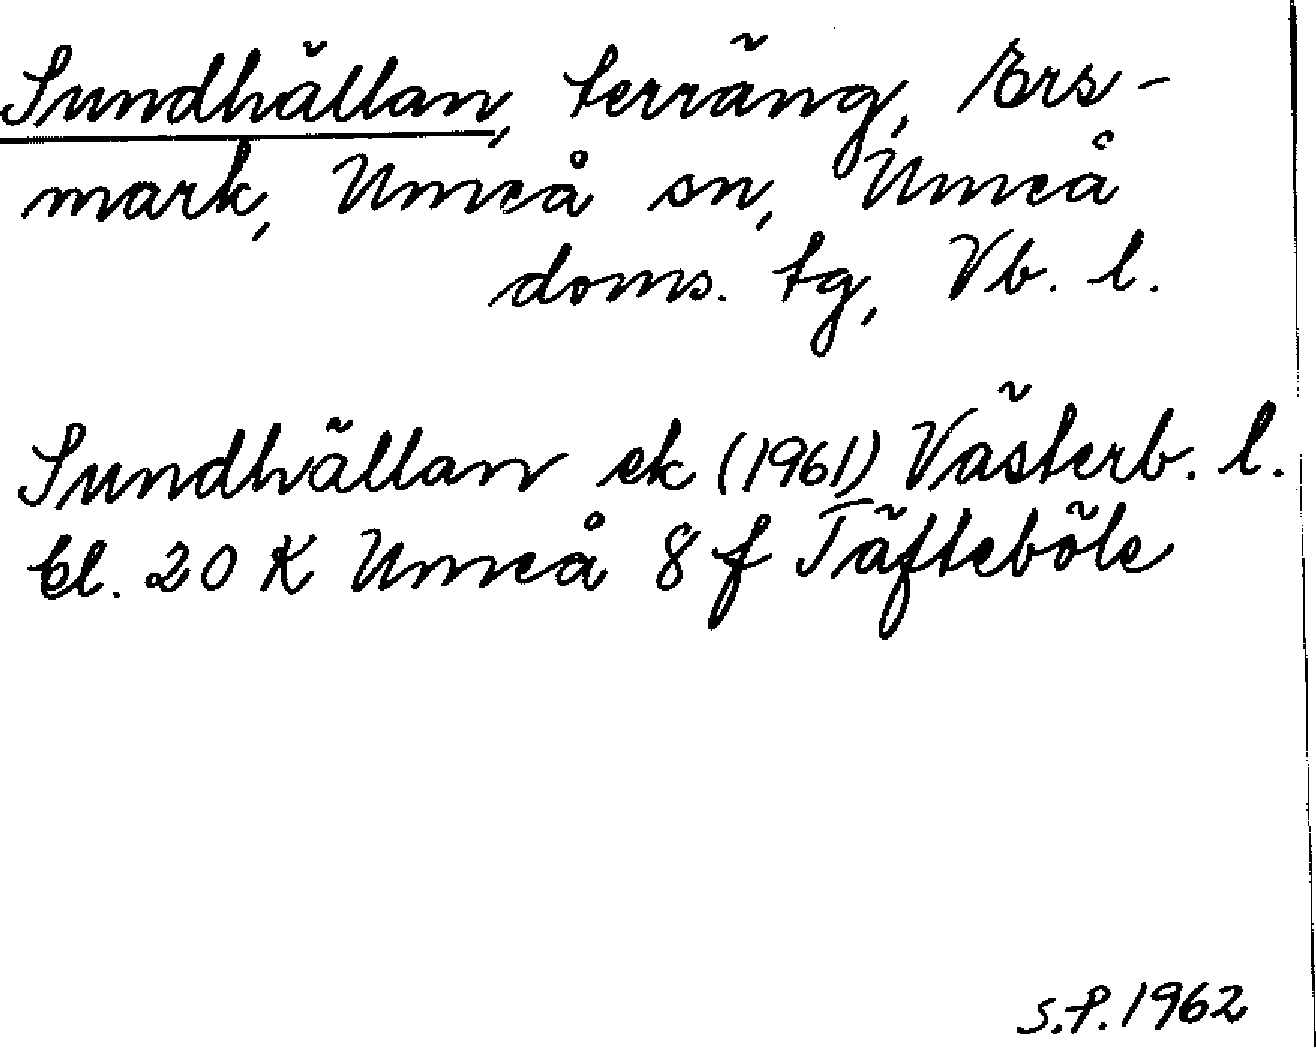 Sundhällan, terräng, Ers-
mark, Umeå sn, Umeå
doms. tg, Vb. l.
Sundhällan ek (1961) Västerb. l.
bl. 20 K Umeå 8 f Täfteböle
S.P. 1962